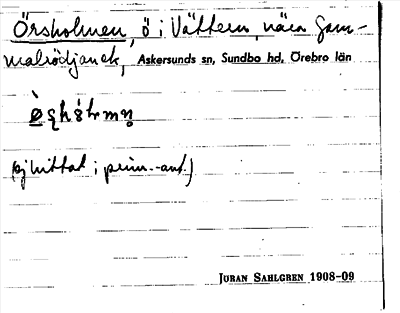 Örsholmen, ö i Vättern, nära Gam-
malrödjan etc, Askersunds sn, Sundbo hd, Örebro län
(ej hittat i prim.-ant.)
JÖRAN SAHLGREN 1908-09